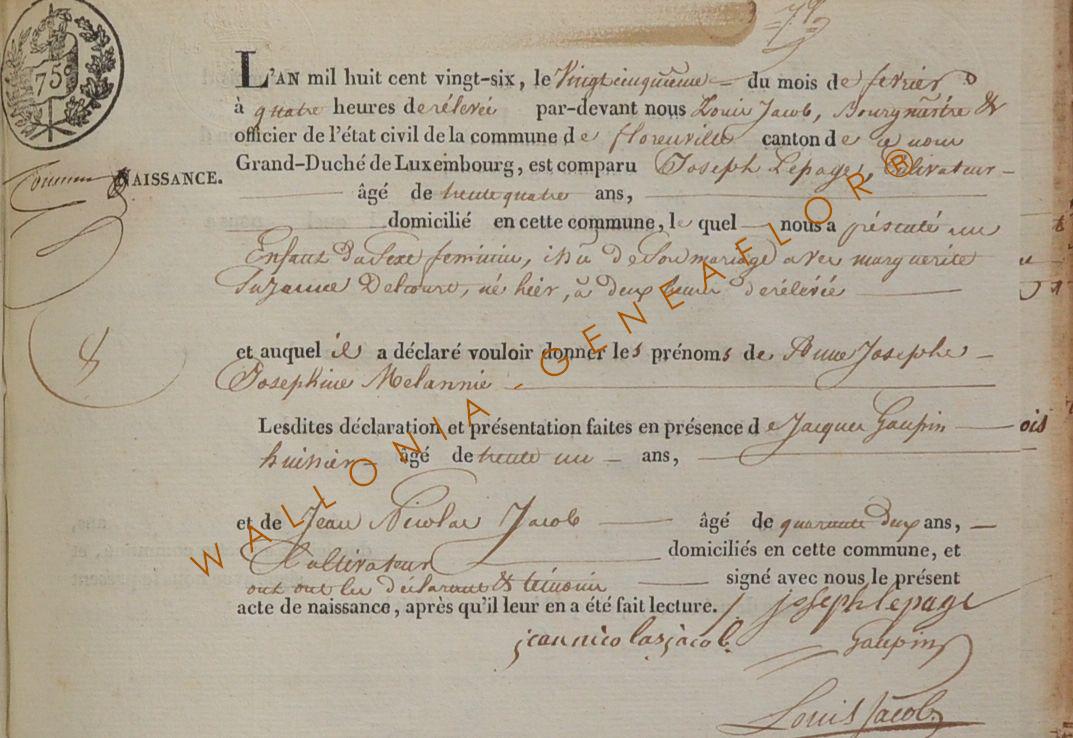 79
75c
L'AN mil huit cent vingt-six, le Vingtcinquieme du mois de fevrier
à quatre heures de rélevée par-devant nous Louis Jacob, Bourgmêstre &
officier de l'état civil de la commune de florenville canton de ce nom
Grand-Duché de Luxembourg, est comparu Joseph Lepage, cultivateur
NAISSANCE.
âgé de trente quatre ans,
domicilié en cette commune, le quel nous a présenté un
Enfant du Sexe feminin, issu de Son mariage avec marguerite
Suzanne Delcourt, né hier, à deux heures de rélévée
et auquel il a déclaré vouloir donner les prénoms de Anne Josephe
Josephine Melannie
Lesdites déclaration et présentation faites en présence de Jacques Gaupin
ois
huissier âgé de trente un ans,
et de Jean Nicolas Jacob âgé de quarante deux ans,
Cultivateur domiciliés en cette commune, et
ont les déclarant & témoins signé avec nous le présent
acte de naissance, après qu'il leur en a été fait lecture.
joseph lepage
jean nicolas jacob
Gaupin
Louis Jacob
WALLONIA - GENEAELOR®